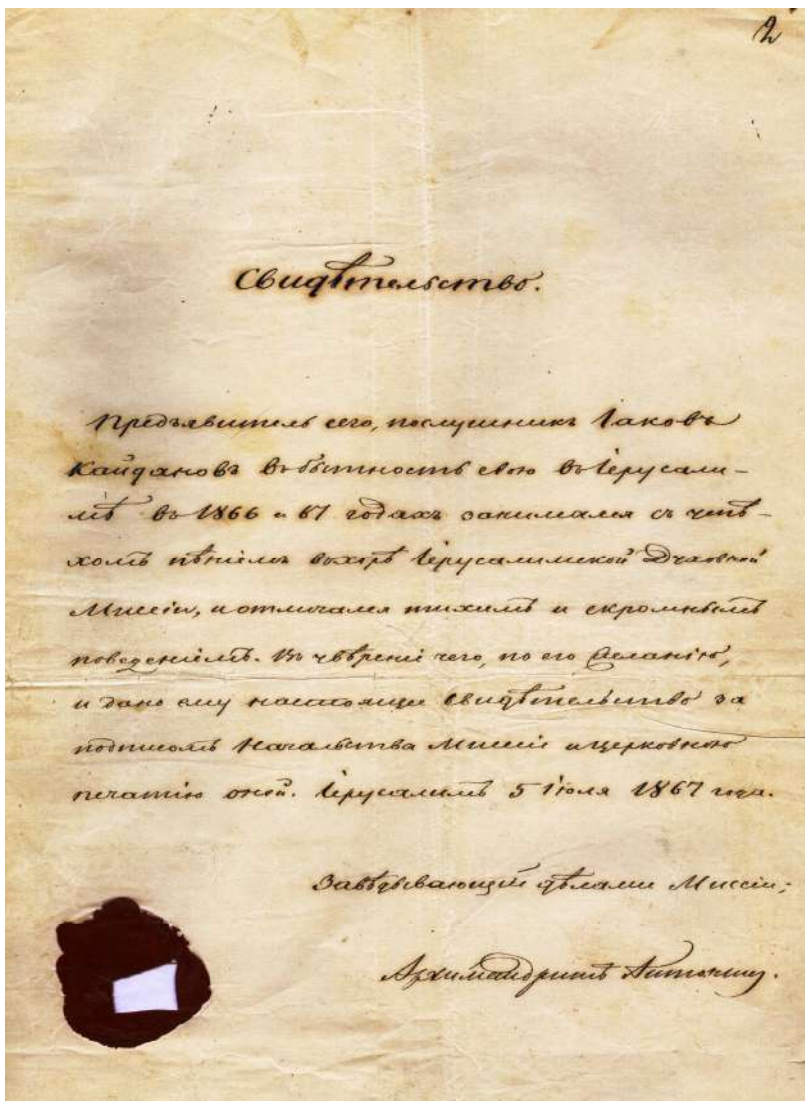 2
Свидѣтельство.
Предъявитель сего, послушникъ Іаковъ
Кайдановъ въ бытность свою въ Іерусали-
мѣ въ 1866 и 67 годахъ занимался съ успѣ-
хомъ пѣніемъ въ хорѣ Іерусалимской Духовной
Миссіи, и отличался тихимъ и скромнымъ
поведеніемъ. Въ увѣреніе чего, по его желанію,
и дано ему настоящее свидѣтельство за
подписомъ Начальства Миссіи и церковною
печатію оной. Іерусалимъ 5 Іюля 1867 года.
Завѣдывающій дѣлами Миссіи;
Архимандритъ Антонинъ.